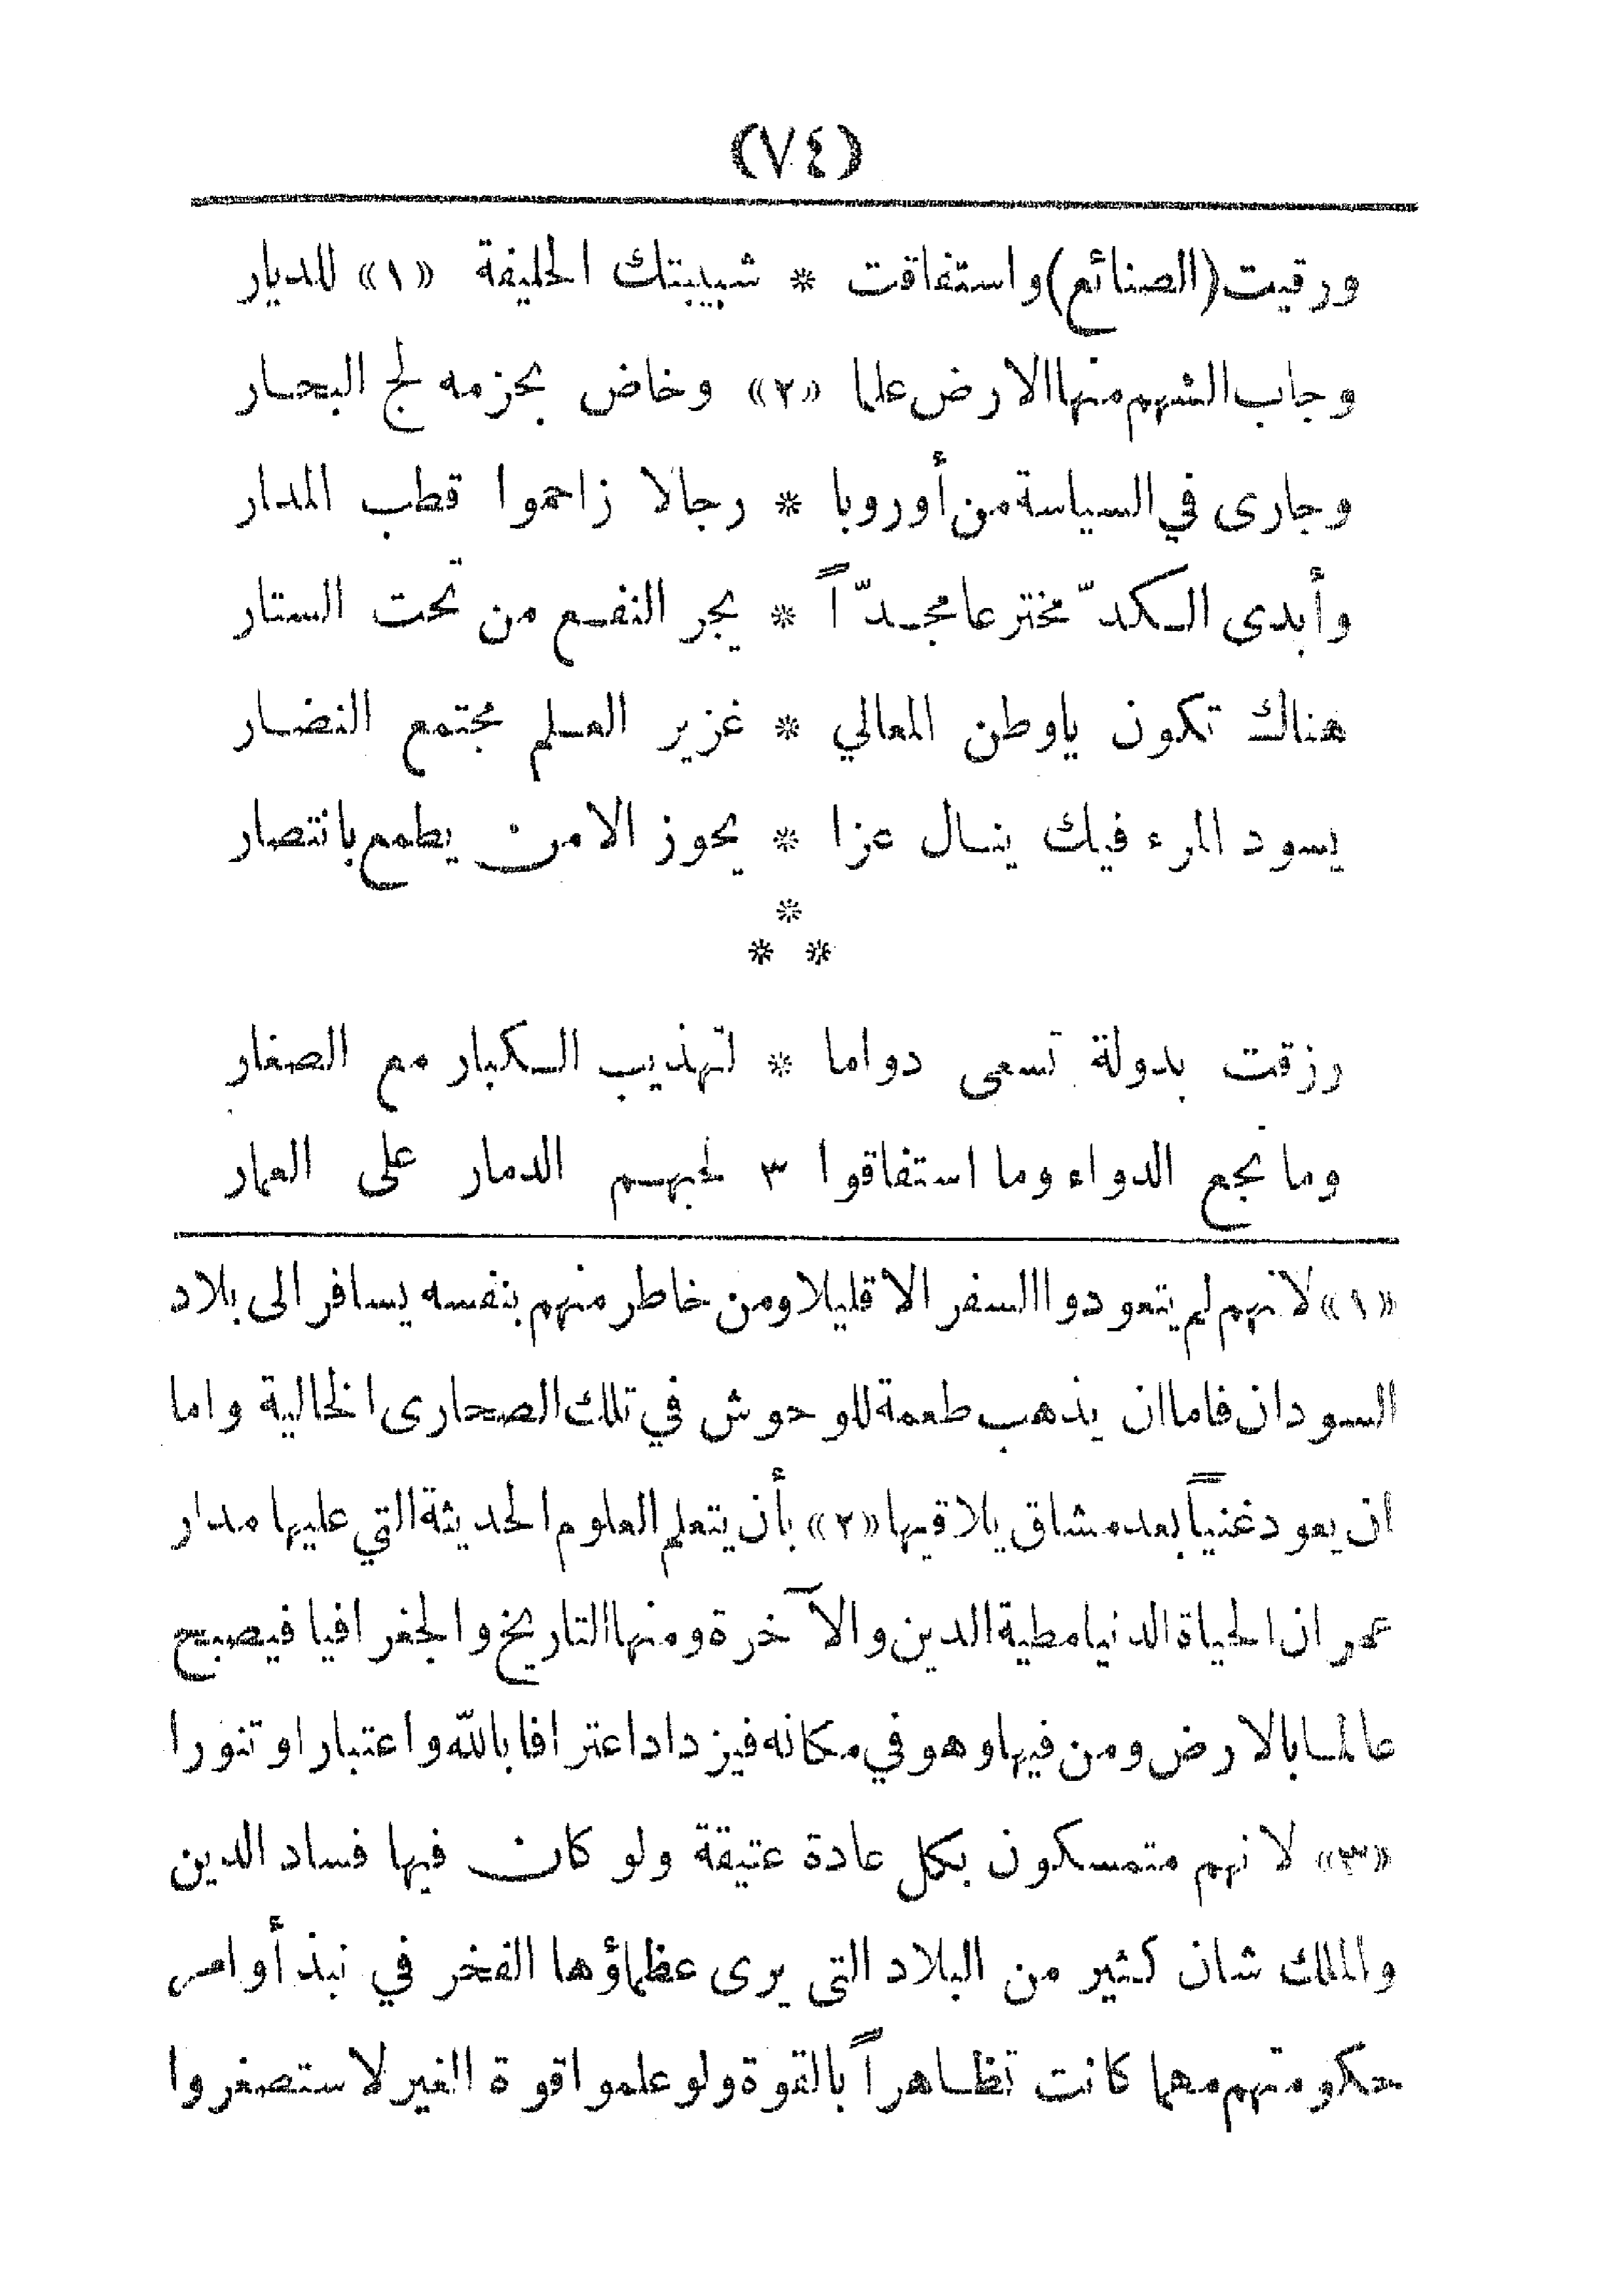 (٧٤)
ورقيت (الصنائع) واستفاقت * شبيبتك الحليفة «١» للديار
وجاب الشهم منها الارض علما «٢» وخاض بحزمه لج البحار
وجارى في السياسة من أوروبا * رجالا زاحموا قطب المدار
وأبدى الكدّ مخترعا مجدّاً * يجر النفع من تحت الستار
هناك تكون ياوطن المعالي * غزير العلم مجتمع النضار
يسود المرء فيك ينال عزا * يحوز الامن يطمع بانتصار
*
* *
رزقت بدولة تسعى دواما * لتهذيب الكبار مع الصغار
وما نجع الدواء وما استفاقوا ٣ لحبهم الدمار على العمار
«١» لانهم لم يتعودوا السفر الا قليلا ومن خاطر منهم بنفسه يسافر الى بلاد
السودان فاما ان يذهب طعمة للوحوش في تلك الصحارى الخالية واما
ان يعود غنياً بعد مشاق يلاقيها «٢» بأن يتعلم العلوم الحديثة التي عليها مدار
عمران الحياة الدنيا مطية الدين والآخرة ومنها التاريخ والجغرافيا فيصبح
عالما بالارض ومن فيها وهو في مكانه فيزداد اعترافا بالله واعتبارا وتنورا
«٣» لانهم متمسكون بكل عادة عتيقة ولو كان فيها فساد الدين
والملك شان كثير من البلاد التى يرى عظماؤها الفخر في نبذ أوامر
حكومتهم مهما كانت تظاهراً بالقوة ولو علموا قوة الغير لاستصغروا